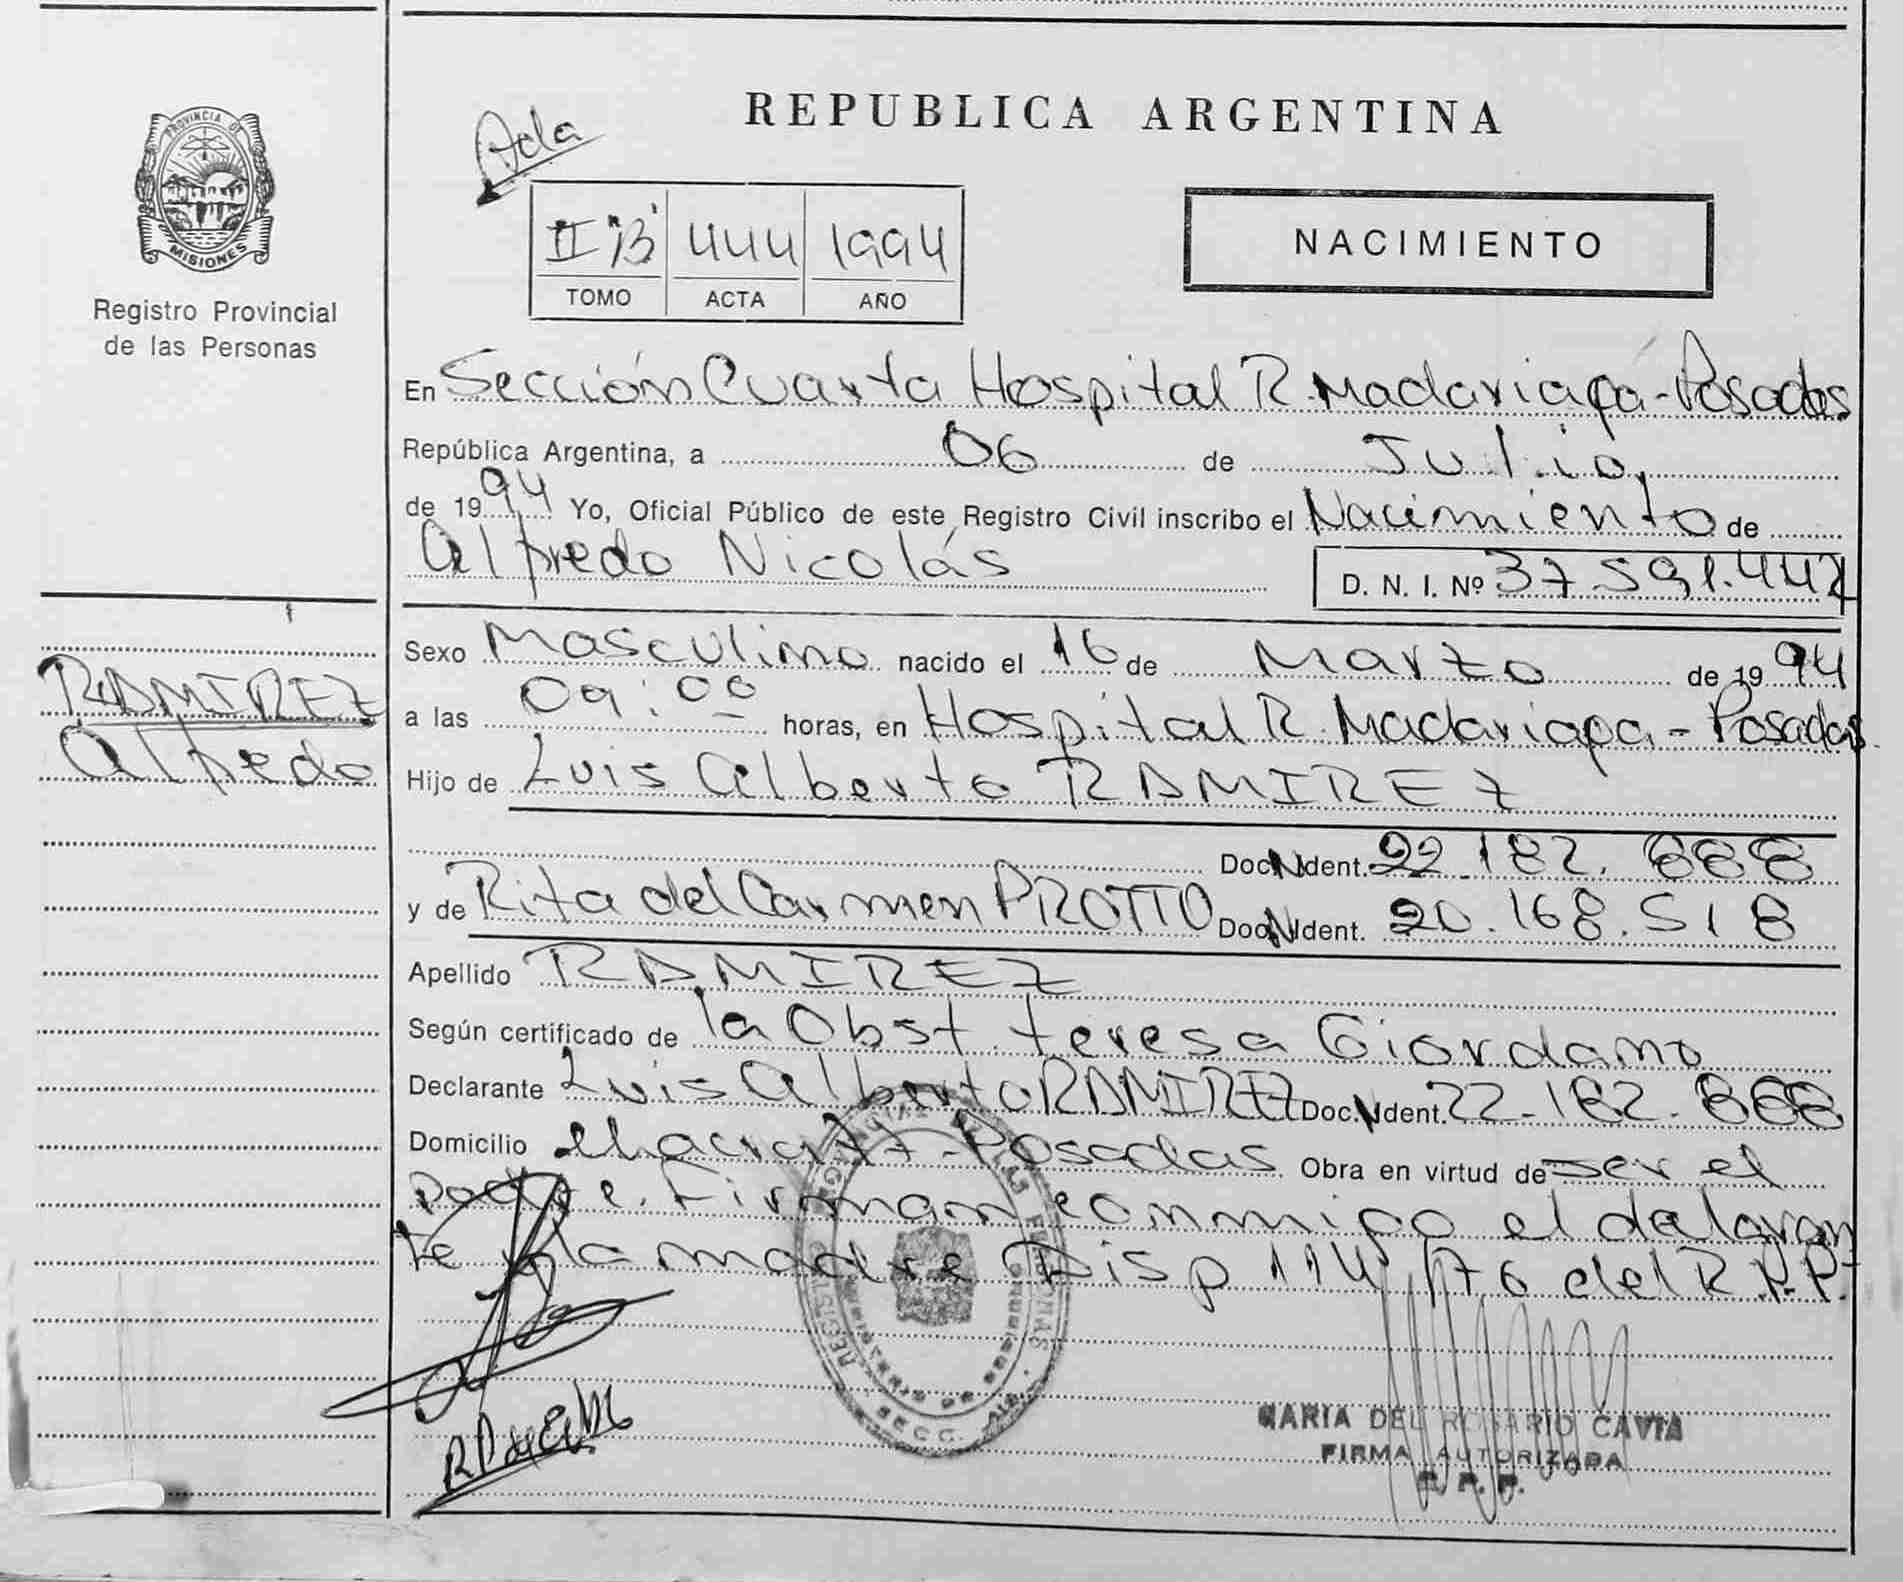 PROVINCIA DE
MISIONES
Registro Provincial
de las Personas
REPUBLICA ARGENTINA
II "B" 444 1994
TOMO ACTA AÑO
NACIMIENTO
En Sección Cuarta Hospital R. Madariaga - Posadas
República Argentina, a 06 de Julio,
de 1994 Yo, Oficial Público de este Registro Civil inscribo el Nacimiento de
Alfredo Nicolás D. N. I. Nº 37.591.442
Sexo Masculino nacido el 16 de Marzo de 1994
RAMIREZ
Alfredo
a las 09:00 horas, en Hospital R. Madariaga - Posadas.
Hijo de Luis Alberto RAMIREZ
Doc. N Ident. 22.182.888
y de Rita del Carmen PROTTO Doc. N Ident. 20.168.518
Apellido RAMIREZ
Según certificado de la Obst. Teresa Giordano
Declarante Luis Alberto RAMIREZ Doc. N Ident. 22.182.888
Domicilio Posadas Obra en virtud de ser el
padre. Firman conmigo el
te y la madre Disp 114/76 del R.P.P.
SECC.
MARIA DEL ROSARIO CAVIA
FIRMA AUTORIZADA